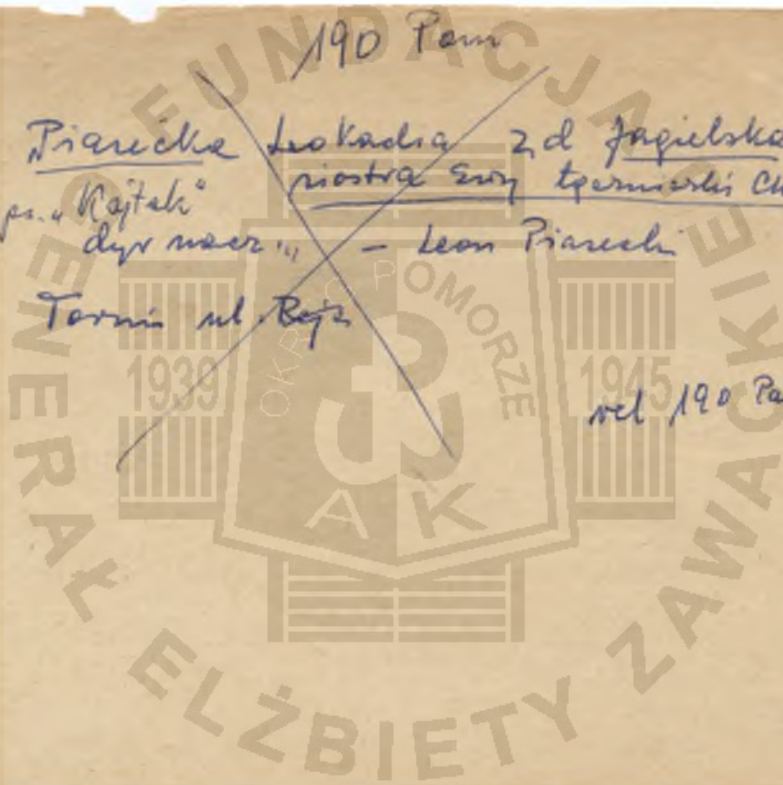 190 Pom
Piasecka Leokadia z d Jagielska
ps. "Kajtek" siostra Ewy łączniczki Ch
dyr nacz... - Leon Piasecki
Toruń ul. Reja
rel 190 Pa
FUNDACJA GENERAŁ ELŻBIETY ZAWACKIE
OKRĘG POMORZE
1939 1945
AK